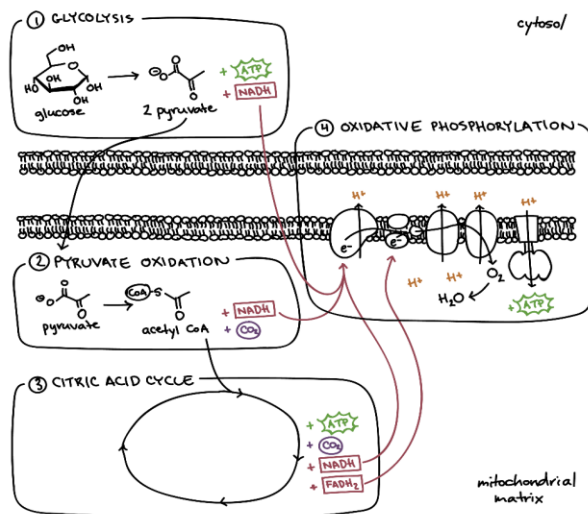 ① GLYCOLYSIS
cytosol
HO
OH
O
HO
OH
OH
glucose
⊖O
O
O
2 pyruvate
+ ATP
+ NADH
④ OXIDATIVE PHOSPHORYLATION
H+ H+ H+ H+
e- e-
H+ H+
O₂
H₂O
+ ATP
② PYRUVATE OXIDATION
⊖O
O
O
pyruvate
CoA-S
O
acetyl CoA
+ NADH
+ CO₂
③ CITRIC ACID CYCLE
+ ATP
+ CO₂
+ NADH
+ FADH₂
mitochondrial
matrix